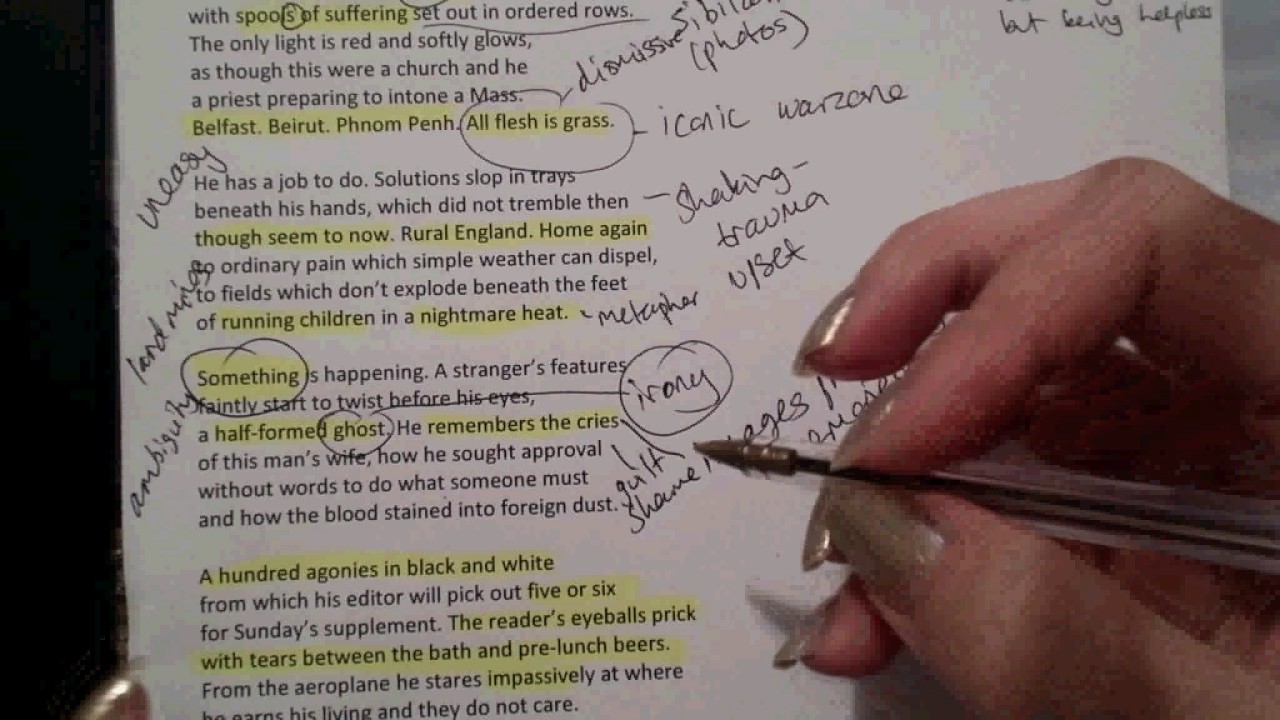 with spools of suffering set out in ordered rows.
The only light is red and softly glows,
as though this were a church and he
a priest preparing to intone a Mass.
Belfast. Beirut. Phnom Penh. All flesh is grass.
dismissive
(photos)
but being helpless
iconic warzone
uneasy
He has a job to do. Solutions slop in trays
beneath his hands, which did not tremble then
though seem to now. Rural England. Home again
to ordinary pain which simple weather can dispel,
to fields which don't explode beneath the feet
of running children in a nightmare heat.
shaking-
trauma
u/set
metaphor
landmines
Something is happening. A stranger's features
faintly start to twist before his eyes,
a half-formed ghost. He remembers the cries
of this man's wife, how he sought approval
without words to do what someone must
and how the blood stained into foreign dust.
irony
ambiguity
guilt
shame
A hundred agonies in black and white
from which his editor will pick out five or six
for Sunday's supplement. The reader's eyeballs prick
with tears between the bath and pre-lunch beers.
From the aeroplane he stares impassively at where
he earns his living and they do not care.